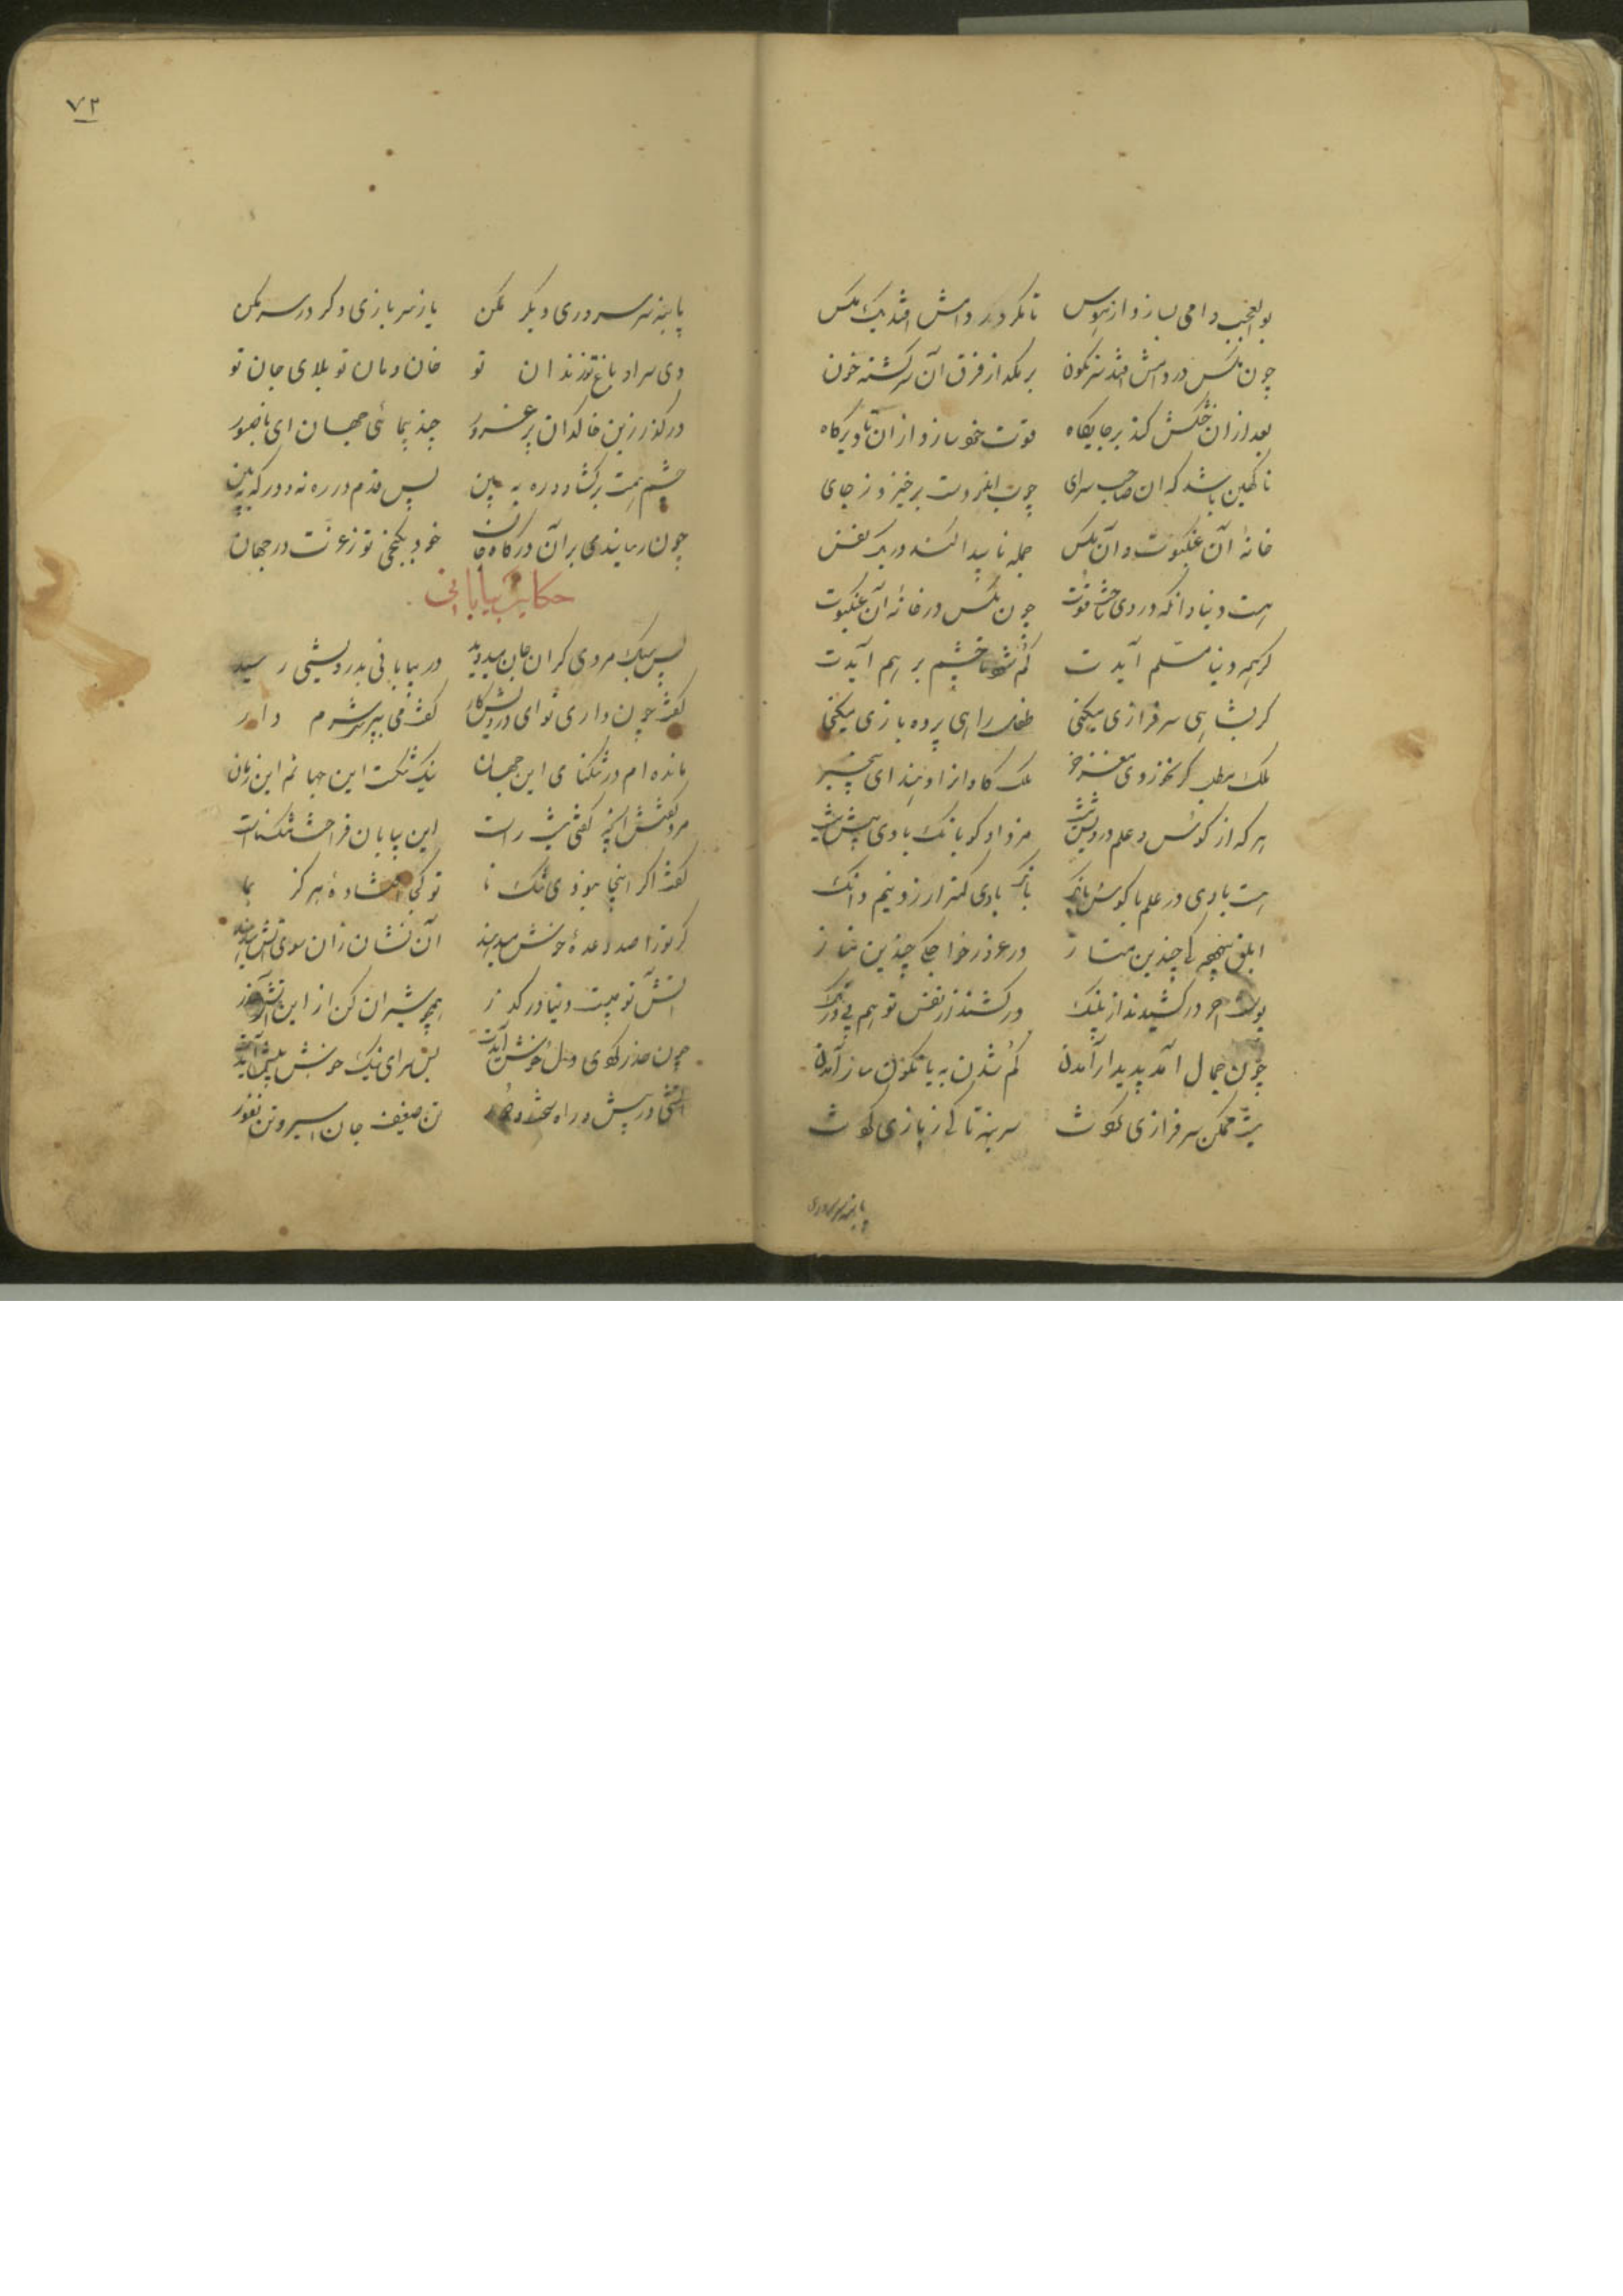 بوالعجب دامی بسازد از هوس تا مکر در دامش افتد یک مکس
چون مکس در دامش افتد سرنکون برمکد از فرق آن سرکشته خون
بعد از ان خشکش کند برجایکاه قوت خود سازد از آن تا دیرکاه
ناکهی باشد که ان صاحب سرای چوب اندر دست برخیزد ز جای
خانهٔ آن عنکبوت و آن مکس جمله ناپیدا کند در یک نفس
هست دنیا و انکه در وی ساخت قوت چون مکس در خانهٔ آن عنکبوت
کر همه دنیا مسلم آیدت کم شود تا چشم بر هم آیدت
کر بشاهی سرفرازی میکنی طفل راهی پرده بازی میکنی
ملک مطلب کر نخوردی مغز خر ملک کاوان را دهند ای بیخبر
هر که از کوس و علم درویش نیست مرد او کو بانک بادی بیش نیست
هست بادی در علم با کوس بانک بانک بادی کمتر ارزد نیم دانک
ابلق بیهودکی چندین متاز در غرور خواجکی چندین مناز
پوست آخر درکشیدند از پلنک درکشند از نفس تو هم بی درنک
چون محال آمد پدیدار آمدن کم شدن به یا نکونسار آمدن
نیست ممکن سرفرازی کردنت سر بنه تا کی ز بازی کردنت
پا بنه سروری
۷۳
یا بنه سر سروری دیکر مکن یا ز سر بازی دکر در سر مکن
وی سرا و باغ تو زندان تو خان و مان تو بلای جان تو
درکذر زین خاکدان پر غرور چند پیمائی جهان ای ناصبور
چشم همت برکشا و ره ببین پس قدم در ره نه و درکه ببین
چون رسانیدی بر آن درکاه جان خود نکنجی تو ز عزت در جهان
حکایت بیابانی
بس سبک مردی کران جان میدوید در بیابانی بدرویشی رسید
کفت چون داری تو ای درویش کار کفت می پرسی شرم دار
مانده ام در تنکنای این جهان تنک تنکست این جهانم این زمان
مرد کفتش انچه کفتی نیست راست این بیابان فراخت تنکناست
کفت اکر اینجا نبودی تنک نا تو کجا افتادهٔ هرکز بما
کر ترا صد وعدهٔ خوش میدهند آن نشان زان سوی آتش میدهند
آتش تو چیست دنیا درکذر همچو شیران کن از این آتش حذر
چون حذر کردی دل خوش آیدت پس سرای نیک خوش پیش آیدت
آتشی در پیش و راه سخت دور تن ضعیف جان اسیر و تن نفور